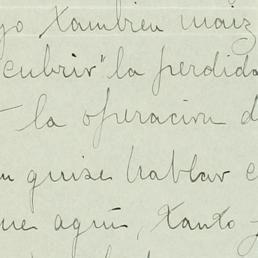 go tambien maiz
cubrir" la perdida
la operacion d
n quise hablar c
ue aqui, tanto